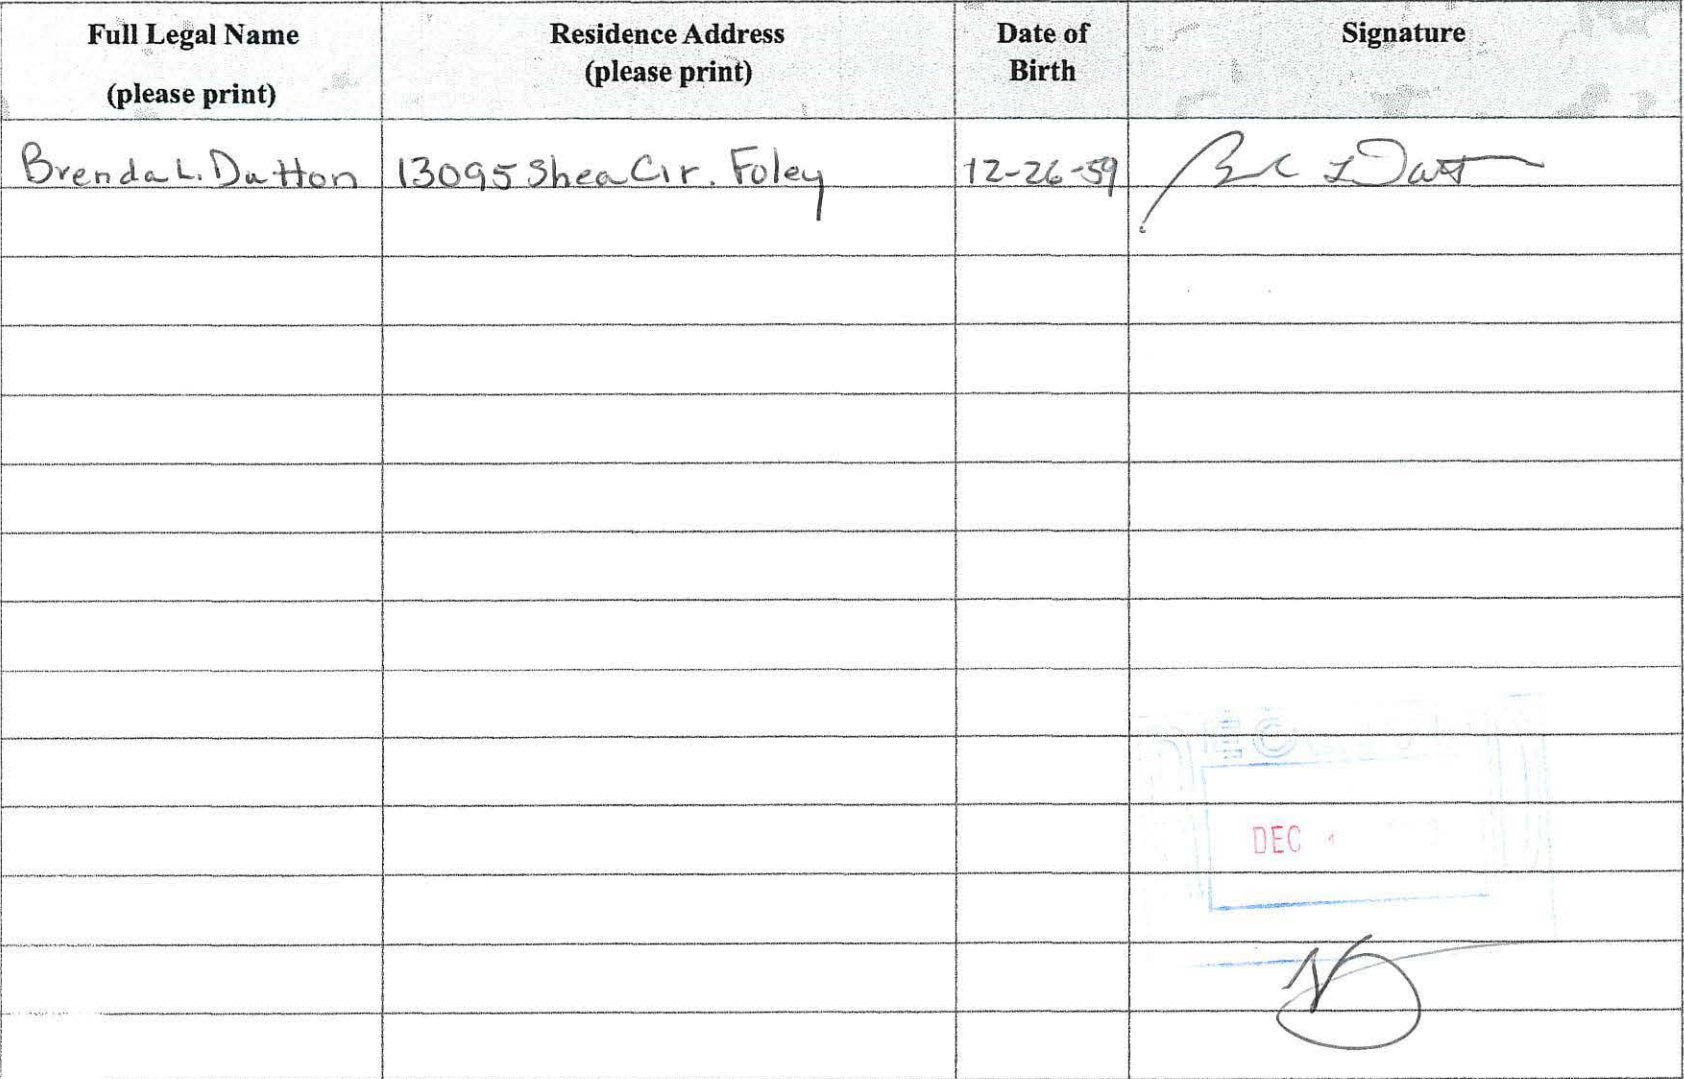 Full Legal Name
(please print)
Residence Address
(please print)
Date of
Birth
Signature
Brenda L. Dutton 13095 Shea Cir. Foley 12-26-59
DEC